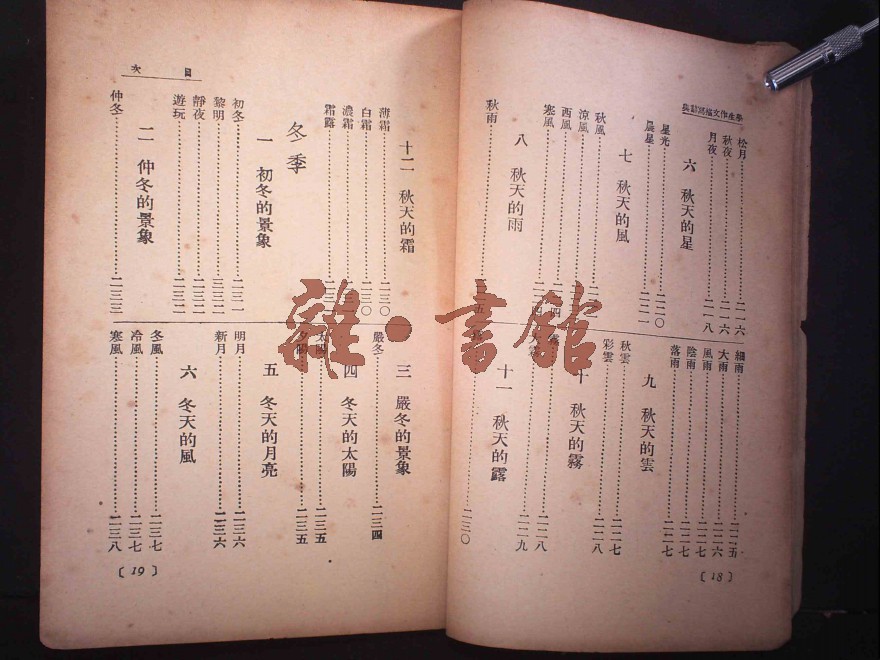 學生作文描寫辭典
松月……二一六
秋夜……二一六
月夜……二一八
六 秋天的星
星光……二二〇
晨星……二二一
七 秋天的風
秋風
涼風
西風
寒風
八 秋天的雨
秋雨
細雨……二二五
大雨……二二六
風雨……二二七
陰雨……二二七
落雨……二二七
九 秋天的雲
秋雲……二二七
彩雲……二二八
十 秋天的霧
……二二八
……二二九
十一 秋天的露
……二三〇
〔18〕
目次
十二 秋天的霜
薄霜……二三〇
白霜……二三〇
濃霜
霜露
冬季
一 初冬的景象
初冬……二三一
黎明……二三二
靜夜……二三二
遊玩……二三二
二 仲冬的景象
仲冬……二三三
三 嚴冬的景象
嚴冬……二三四
四 冬天的太陽
太陽……二三五
夕陽……二三五
五 冬天的月亮
明月……二三六
新月……二三六
六 冬天的風
冬風……二三七
冷風……二三七
寒風……二三八
〔19〕
雜·書館